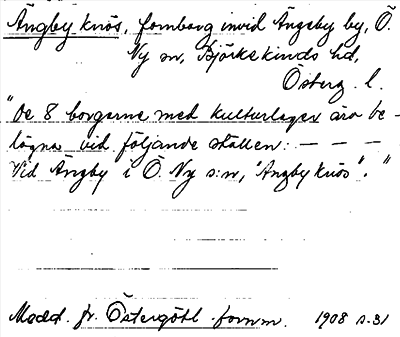 Ängby knös, fornborg invid Ängby by, Ö.
Ny sn, Björkekinds hd,
Österg. l.
"De 8 borgarne med kulturlager äro be-
lägna vid följande ställen: — — —
Vid Ängby i Ö. Ny s:n, "Ängby knös"."
Medd. fr. Östergötl. fornm. 1908 s. 31